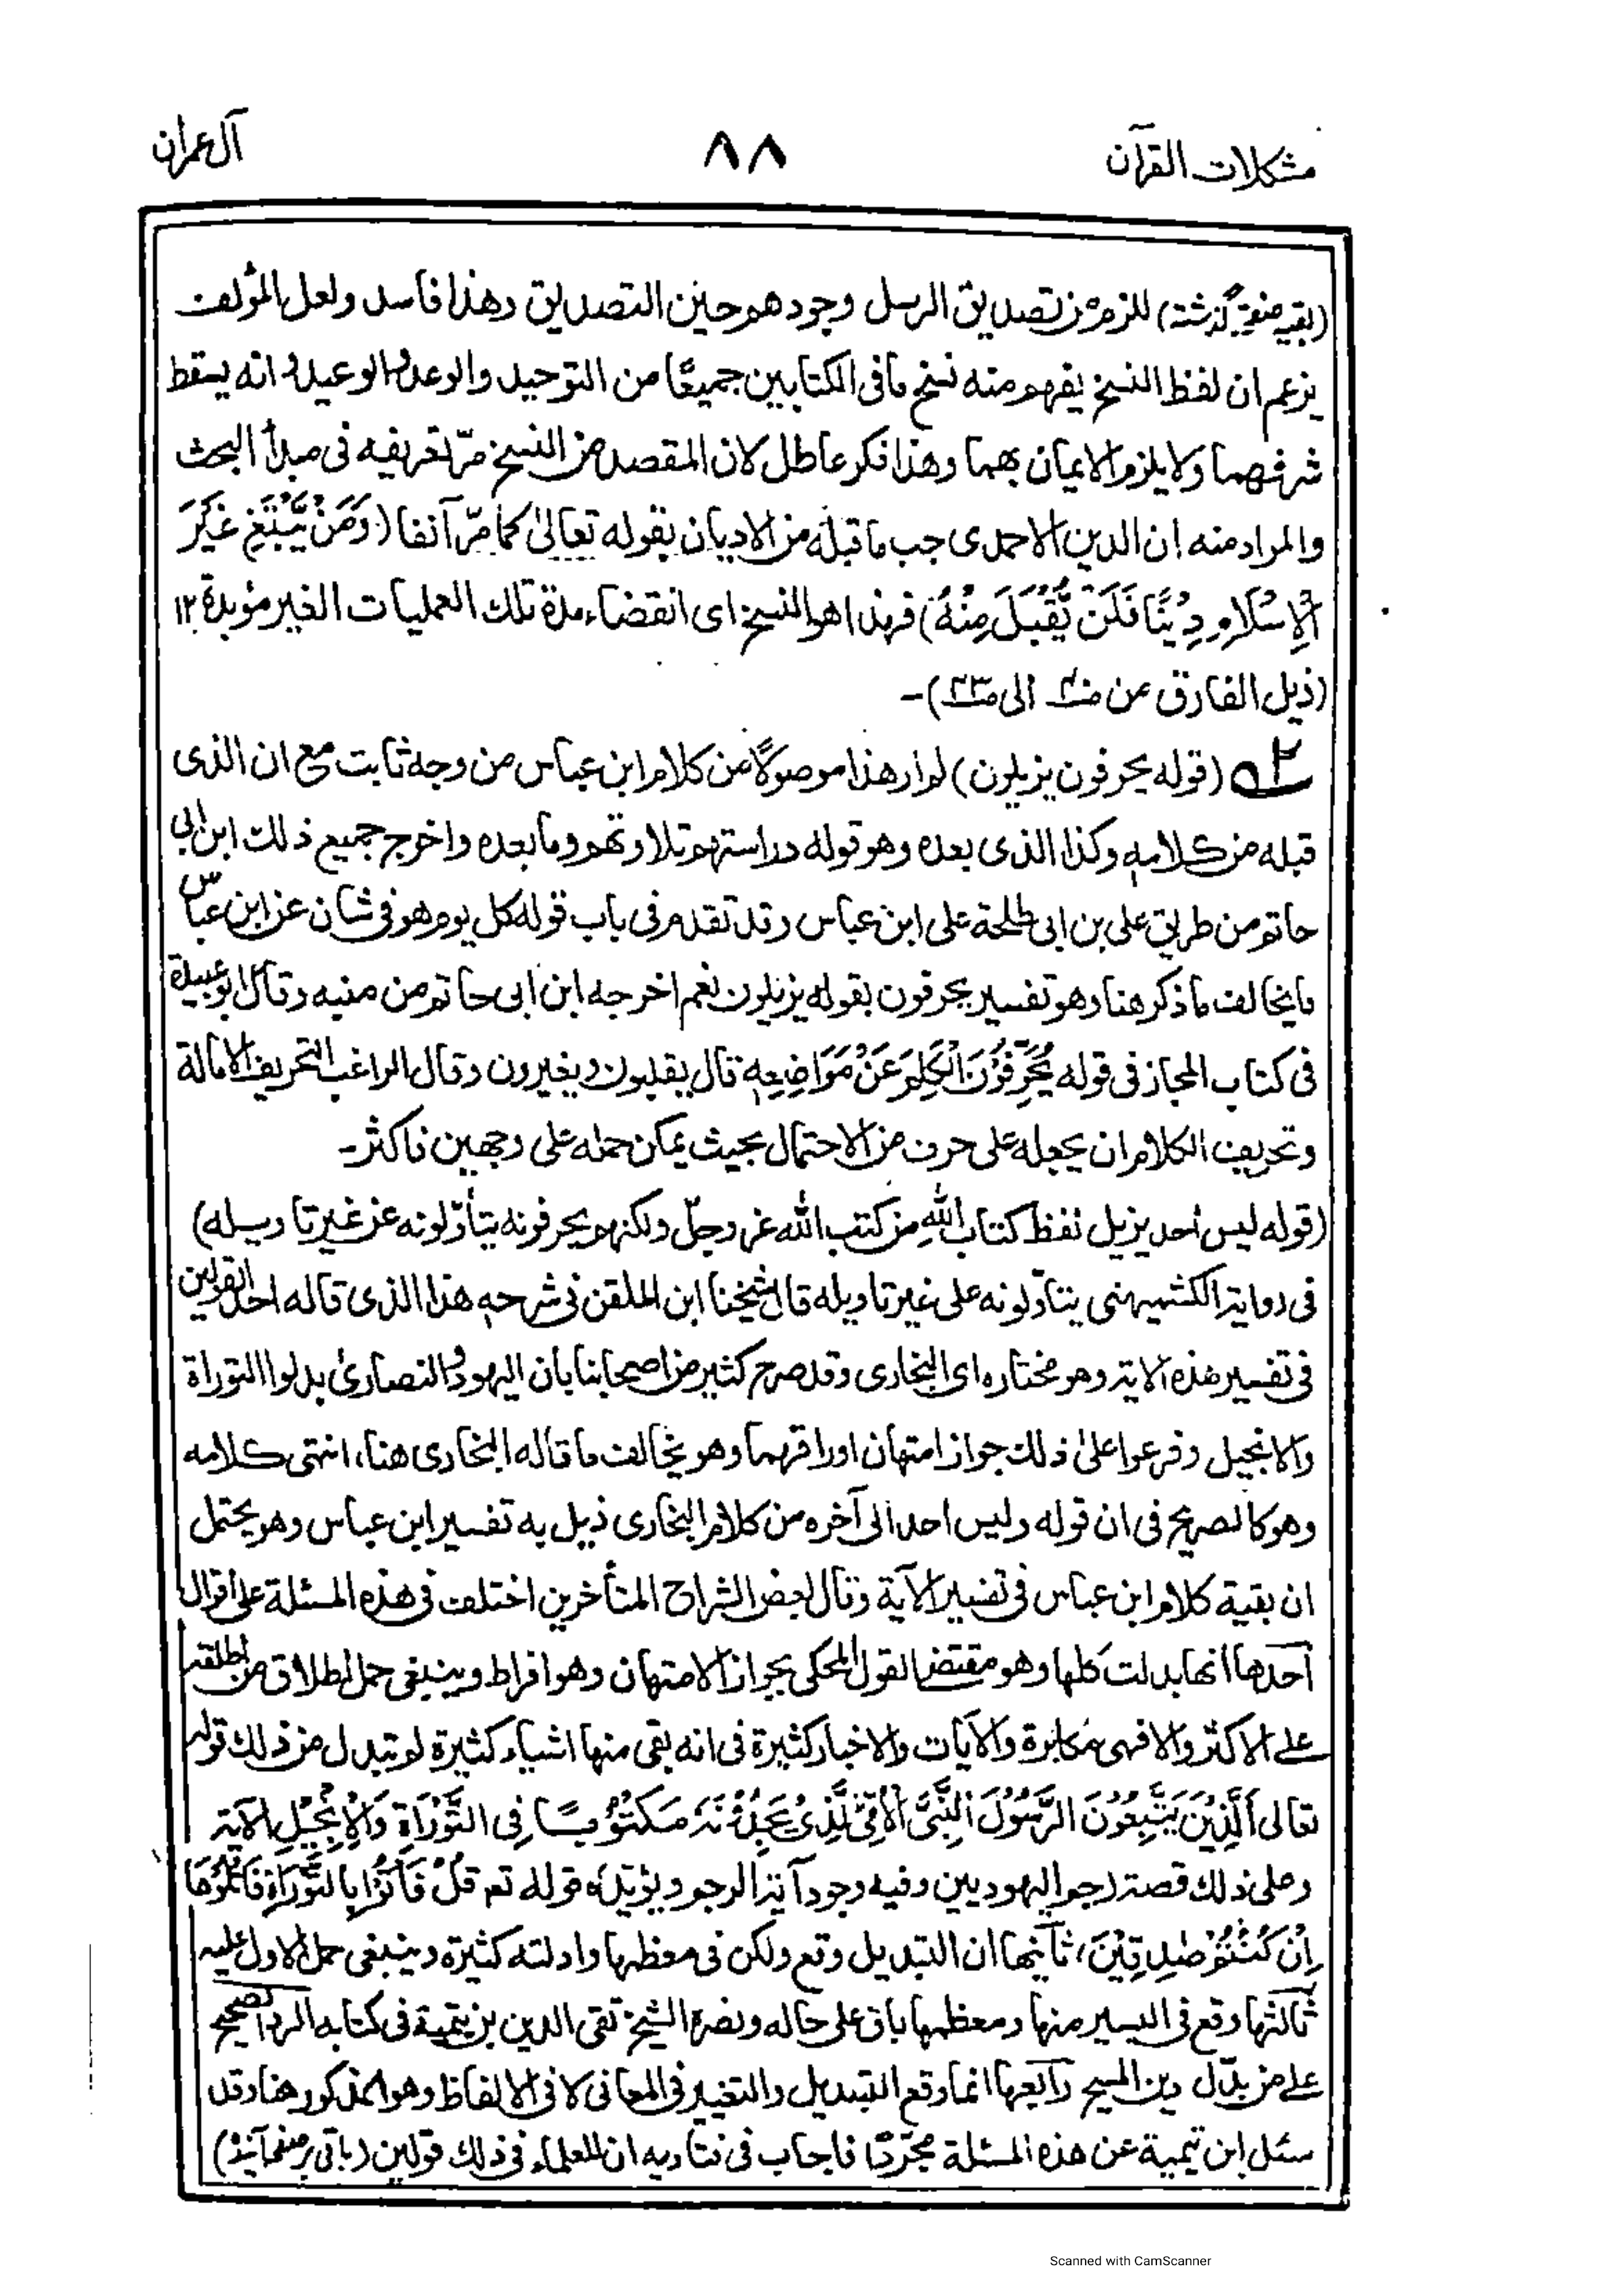 مشکلات القرآن
۸۸
آل عمران
(بقیہ صفحۂ گذشتہ) للزم من تصدیق الرسل وجود هو حین التصدیق وهذا فاسد ولعل المؤلف
یزعم ان لفظ النسخ یفهم منه نسخ مافی الکتابین جمیعًا من التوحید والوعد والوعید وانه یسقط
شرفهما ولا یلزم الایمان بهما وهذا فکر عاطل لان المقصد من النسخ مرّ تعریفه فی مبدأ البحث
والمراد منه ان الدین الاحمدی جب ماقبله من الادیان بقوله تعالیٰ کما مرّ آنفا (وَمَنْ یَّبْتَغِ غَیْرَ
الْاِسْلَامِ دِیْنًا فَلَنْ یُّقْبَلَ مِنْهُ) فهذا هو النسخ ای انقضاء مدة تلک العملیات الغیر مؤبدة ۱۲
(ذیل الفارق عن الی)-
(قوله یحرفون یزیلون) لم ار هذا موصولًا من کلام ابن عباس من وجه ثابت مع ان الذی
قبله من کلامه وکذا الذی بعده وهو قوله دراستهم تلاوتهم وما بعده واخرج جمیع ذلک ابن ابی
حاتم من طریق علی بن ابی طلحة علی ابن عباس وقد تقدم فی باب قوله کل یوم هو فی شان عن ابن عباس
مایخالف ماذکر هنا وهو تفسیر یحرفون بقوله یزیلون نعم اخرجه ابن ابی حاتم من منبه وقال ابو عبیدة
فی کتاب المجاز فی قوله یُحَرِّفُوْنَ الْکَلِمَ عَنْ مَوَاضِعِهٖ قال یقلبون ویغیرون وقال الراغب التحریف الامالة
وتحریف الکلام ان یجعله علی حرف من الاحتمال بحیث یمکن حمله علی وجهین فاکثر-
(قوله لیس احد یزیل لفظ کتاب اللهِ من کتب الله عز وجلّ ولکنهم یحرفونه یتأوّلونه عن غیر تاویله)
فی روایة الکشمیهنی یتأوّلونه علی غیر تاویله قال شیخنا ابن الملقن فی شرحه هذا الذی قاله احد القولین
فی تفسیر هذه الایة وهو مختاره ای البخاری وقد صرح کثیر من اصحابنا بان الیهود والنصاریٰ بدلوا التوراة
والانجیل وفرعوا علیٰ ذلک جواز امتهان اوراقهما وهو یخالف ماقاله البخاری هنا، انتهی کلامه
وهو کالصریح فی ان قوله ولیس احد الی آخره من کلام البخاری ذیل به تفسیر ابن عباس وهو یحتمل
ان بقیة کلام ابن عباس فی تفسیر الآیة وقال بعض الشراح المتأخرین اختلف فی هذه المسئلة علی اقوال
احدها انها بدلت کلها وهو مقتضی القول المحکی بجواز الامتهان وهو افراط وینبغی حمل اطلاق من اطلقه
علی الاکثر والا فهی مکابرة والآیات والاخبار کثیرة فی انه بقی منها اشیاء کثیرة لم تبدل من ذلک قوله
تعالی اَلَّذِیْنَ یَتَّبِعُوْنَ الرَّسُوْلَ النَّبِیَّ الْاُمِّیَّ الَّذِیْ یَجِدُوْنَهٗ مَکْتُوْبًا فِی التَّوْرَاةِ وَالْاِنْجِیْلِ الآیة
ومن ذلک قصة رجم الیهودیین وفیه وجود آیة الرجم ویؤیده قوله تعم قُلْ فَأْتُوْا بِالتَّوْرَاةِ فَاتْلُوْهَا
اِنْ کُنْتُمْ صٰدِقِیْنَ، ثانیها ان التبدیل وقع ولکن فی معظمها وادلته کثیرة وینبغی حمل الاول علیه
ثالثها وقع فی الیسیر منها ومعظمها باق علی حاله ونصره الشیخ تقی الدین بن تیمیة فی کتابه الرد الصحیح
علی من بدّل دین المسیح رابعها انما وقع التبدیل والتغییر فی المعانی لا فی الالفاظ وهو المذکور هنا وقد
سئل ابن تیمیة عن هذه المسئلة مجرّدًا فاجاب فی فتاویه ان للعلماء فی ذلک قولین (باقی بر صفحہ آئندہ)
Scanned with CamScanner